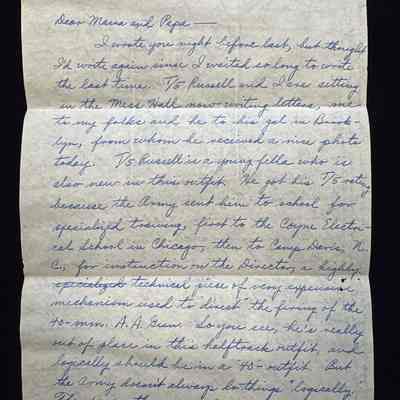 Dear Mama and Papa —
I wrote you night before last, but thought
I'd write again since I waited so long to write
the last time. T/5 Russell and I are sitting
in the Mess Hall now writing letters, me
to my folks and he to his gal in Brook-
lyn, from whom he received a nice photo
today. T/5 Russell is a young fella who is
also new in this outfit. He got his T/5 rating
because the Army sent him to school for
specialized training, first to the Coyne Electri-
cal School in Chicago, then to Camp Davis, N.
C., for instruction on the Director, a highly
specialized technical piece of very expensive
mechanism used to "direct" the firing of the
40-mm. A.A. Gun. So you see, he's really
out of place in this halftrack outfit, and
logically should be in a "40" outfit. But
the Army doesn't always do things "logically.